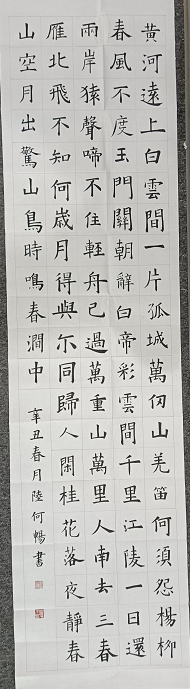 黃河遠上白雲間一片孤城萬仞山羌笛何須怨楊柳
春風不度玉門關朝辭白帝彩雲間千里江陵一日還
兩岸猿聲啼不住輕舟已過萬重山萬里人南去三春
雁北飛不知何歲月得與尔同歸人閑桂花落夜靜春
山空月出驚山鳥時鳴春澗中
辛丑春月陸何暢書